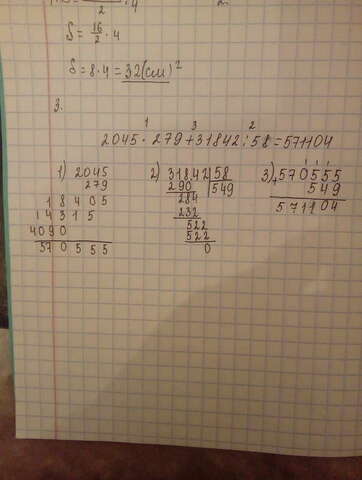 2
S = 16/2 · 4
S = 8 · 4 = 32(см)²
3.
1 3 2
2045 · 279 + 31842 : 58 = 571104
1) 2045
279
18405
14315
4090
570555
2) 31842 58
290 549
284
232
522
522
0
3) + 570555
549
571104